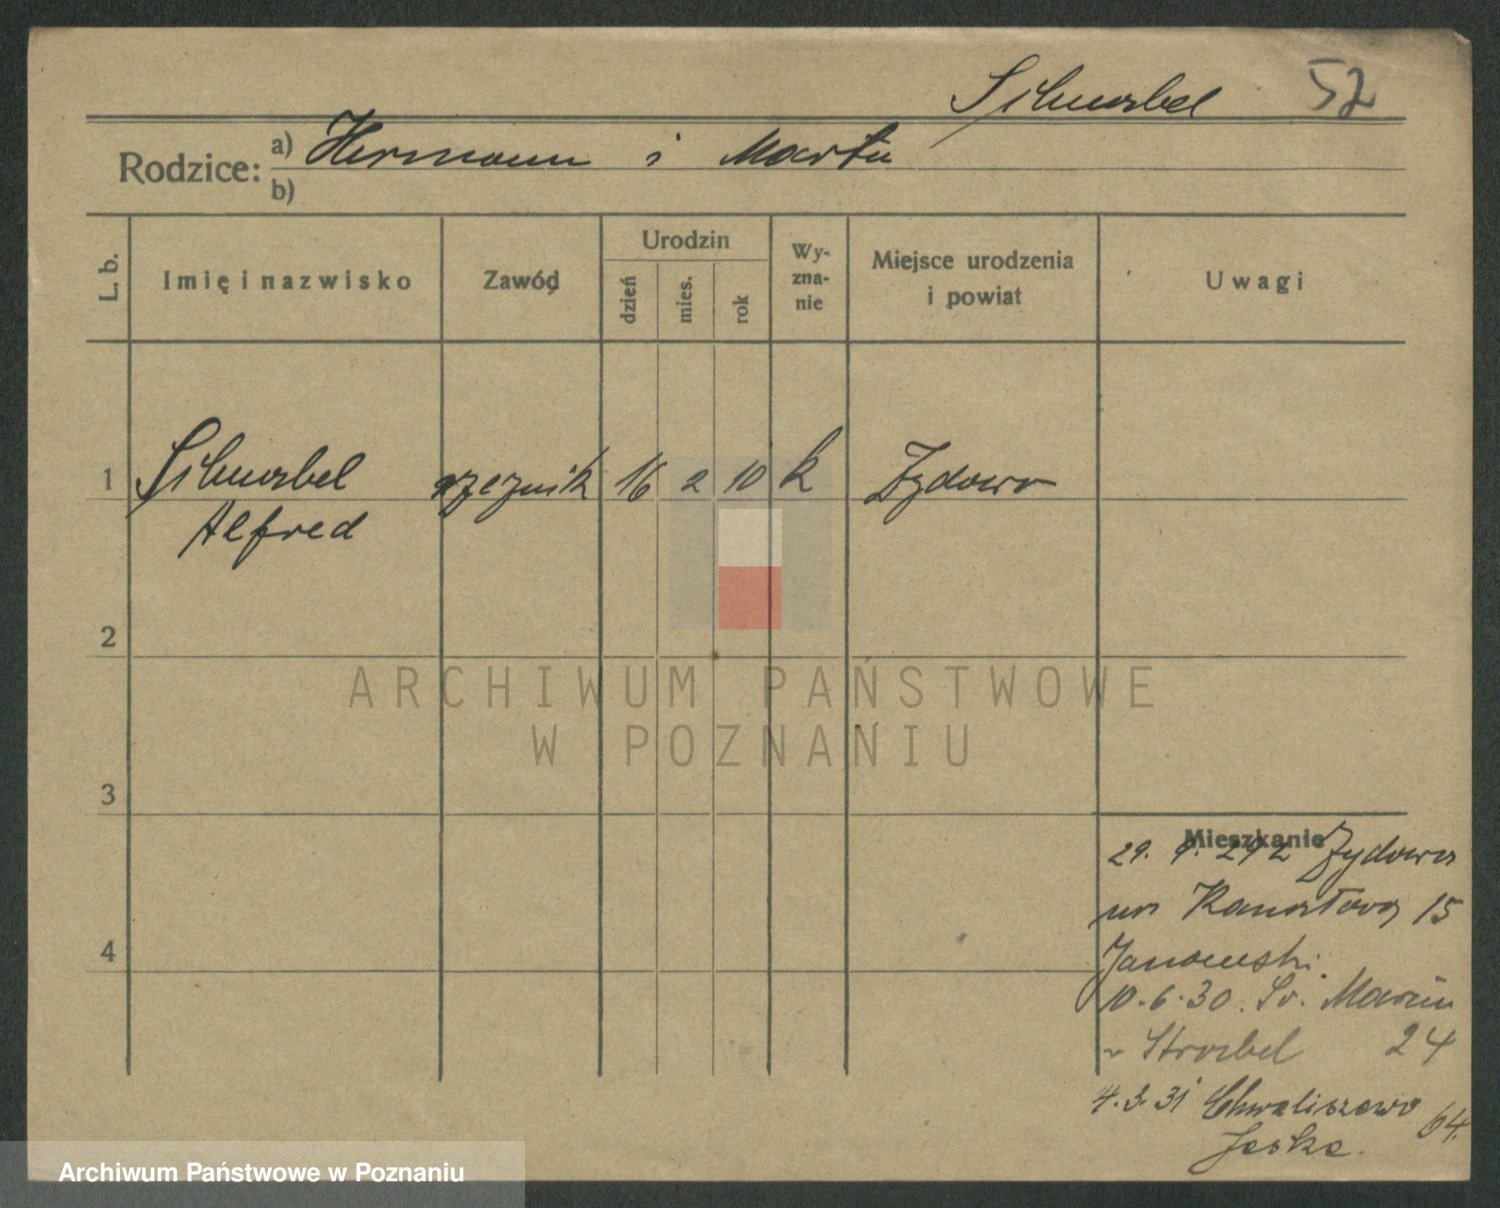 Schnabel 52
Rodzice: a) Hermann i Marta
b)
L. b. Imię i nazwisko Zawód Urodzin dzień mies. rok Wy-zna-nie Miejsce urodzenia i powiat Uwagi
1 Schnabel rzeźnik 16 2 10 k Żydowo
Alfred
2
ARCHIWUM PAŃSTWOWE
W POZNANIU
3
Mieszkanie
29. 9. 29 z Żydowa
na 15
4
Janowski
10.6.30. Św. Marcin
Strobel 24
4.3.31 Chwaliszewo 64.
Jeske.
Archiwum Państwowe w Poznaniu